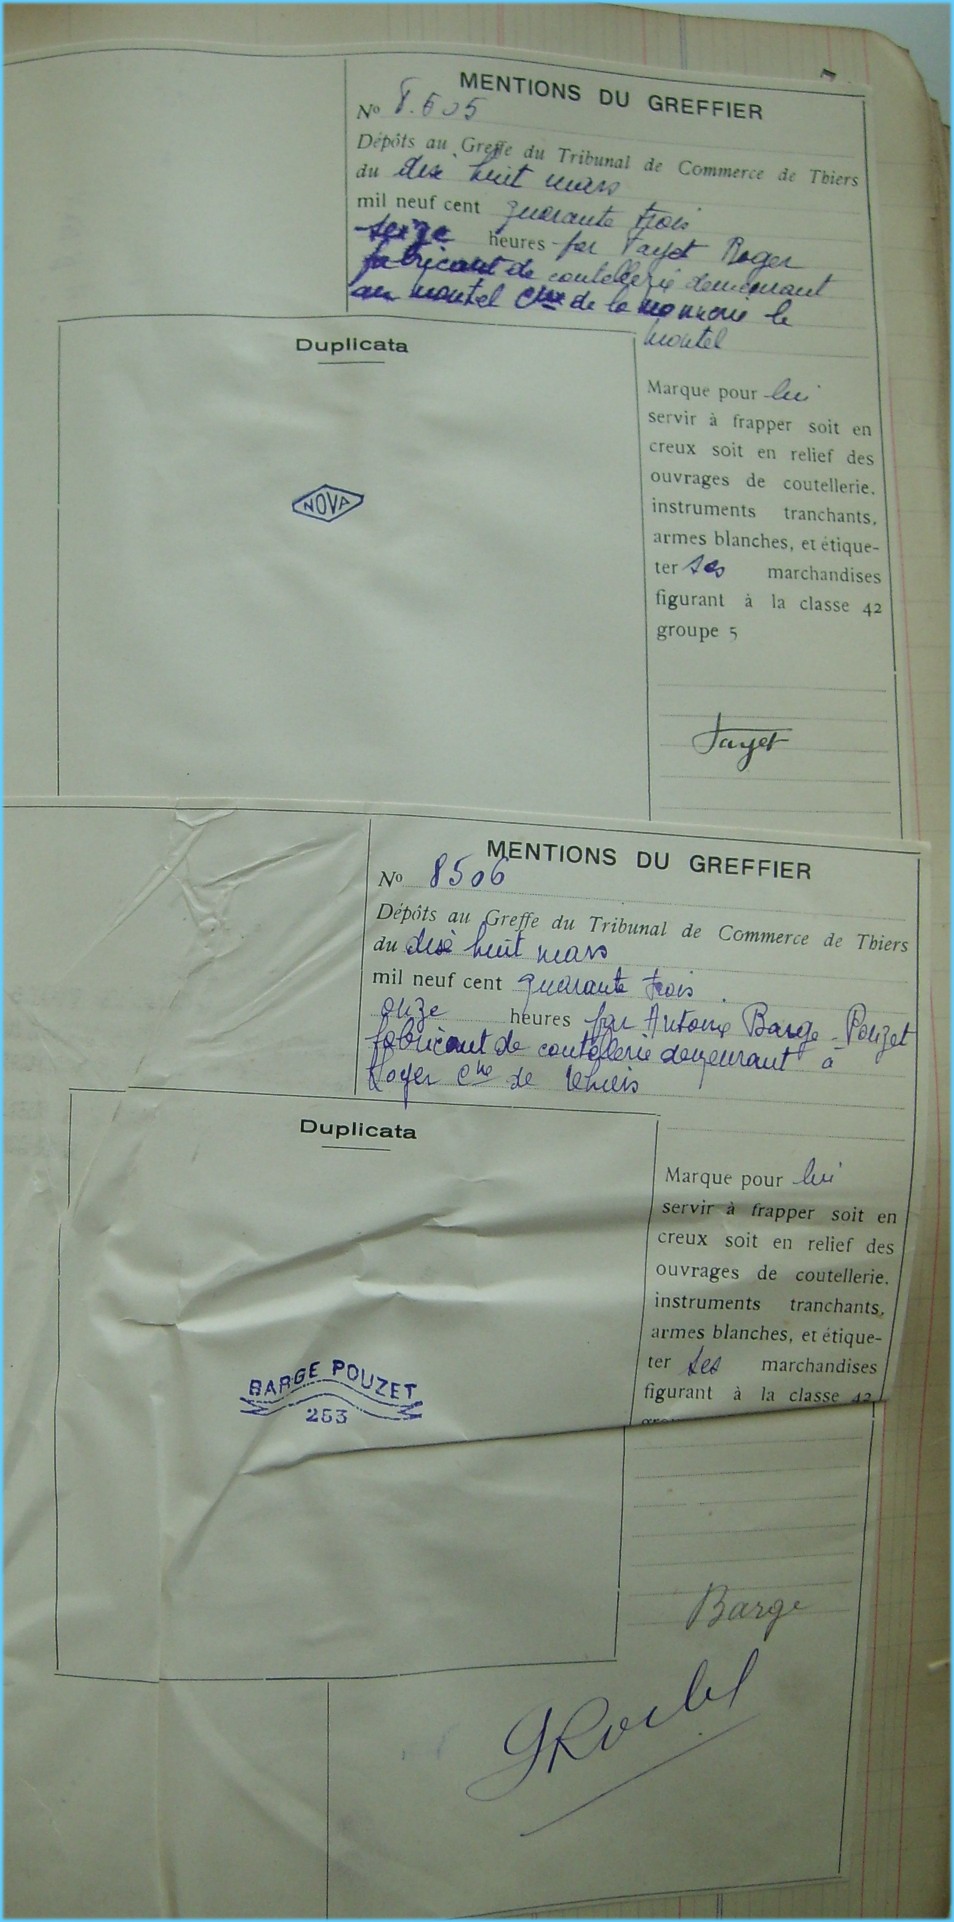 MENTIONS DU GREFFIER
Nº 8.505
Dépôts au Greffe du Tribunal de Commerce de Thiers
du dix huit mars
mil neuf cent quarante trois
seize heures par Fayet Roger
fabricant de coutellerie demeurant
au montel Cne de la monnerie le
montel
Duplicata
NOVA
Marque pour lui
servir à frapper soit en
creux soit en relief des
ouvrages de coutellerie.
instruments tranchants,
armes blanches, et étique-
ter ses marchandises
figurant à la classe 42
groupe 5
Fayet
MENTIONS DU GREFFIER
Nº 8506
Dépôts au Greffe du Tribunal de Commerce de Thiers
du dix huit mars
mil neuf cent quarante trois
onze heures par Antoine Barge-Pouzet
fabricant de coutellerie demeurant à
Cne de Thiers
Duplicata
BARGE POUZET
253
Marque pour lui
servir à frapper soit en
creux soit en relief des
ouvrages de coutellerie.
instruments tranchants,
armes blanches, et étique-
ter ses marchandises
figurant à la classe 42
Barge